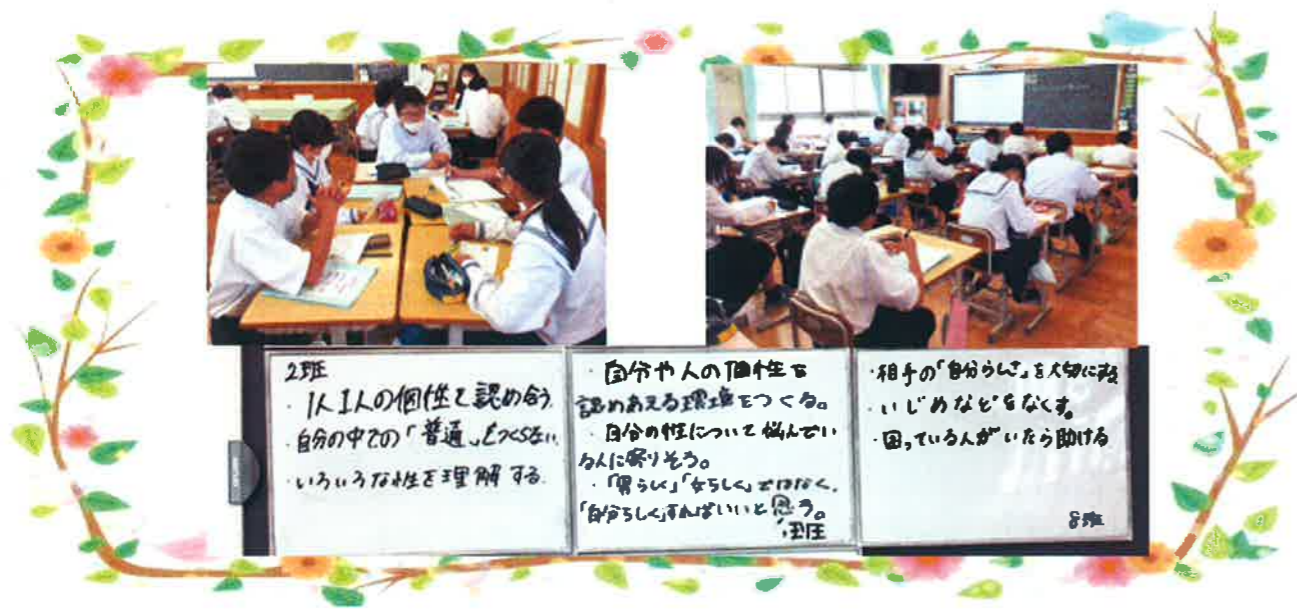 2班
・1人1人の個性を認め合う
・自分の中での「普通」をつくらない
・いろいろな性を理解する
・自分や人の個性を
認めあえる環境をつくる。
・自分の性について悩んでい
る人に寄りそう。
・「男らしく」「女らしく」ではなく、
「自分らしく」すればいいと思う。
・相手の「自分らしさ」を大切にする
・いじめなどをなくす。
・困っている人がいたら助ける
8班